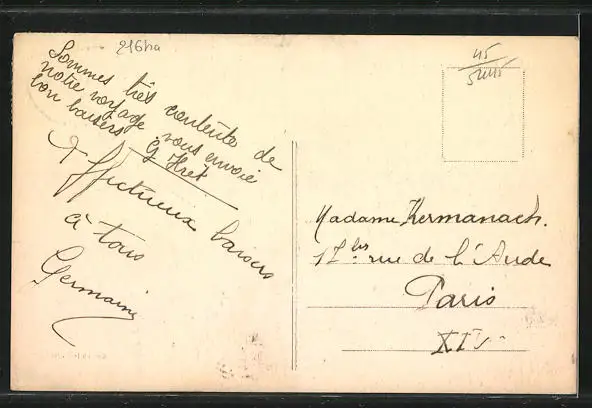 216ha
Sommes très contente de
notre voyage vous envoie
bon baisers G
Affectueux baisers
à tous
Germaine
45
Madame Kermanach.
17 bis rue de l'Aude
Paris
XIV